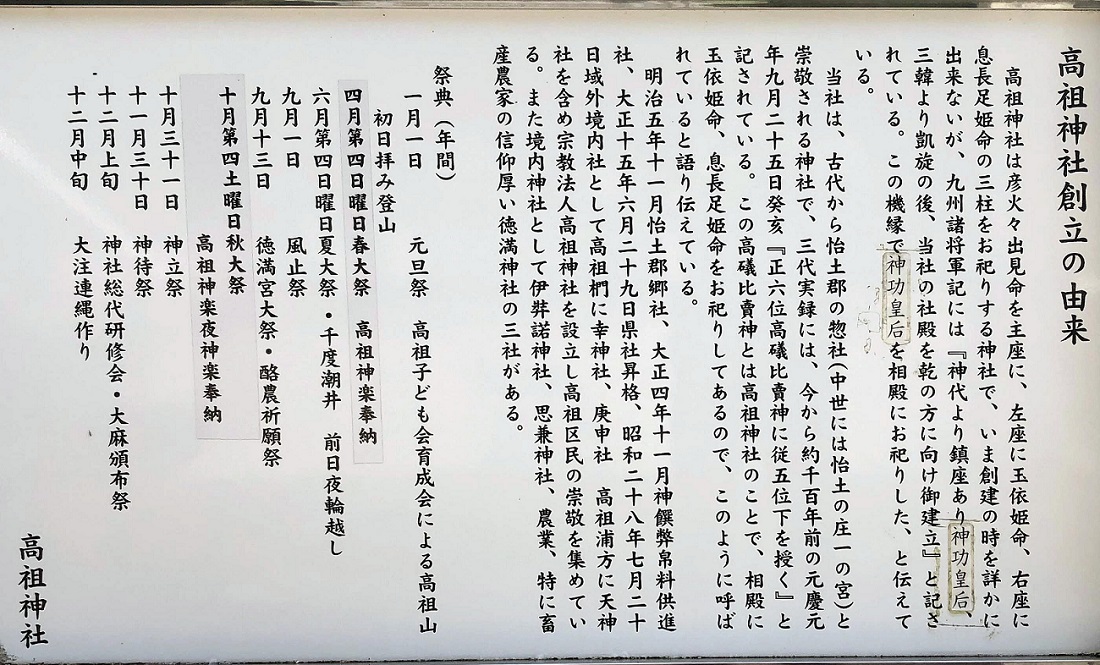 高祖神社創立の由来
高祖神社は彦火々出見命を主座に、左座に玉依姫命、右座に
息長足姫命の三柱をお祀りする神社で、いま創建の時を詳かに
出来ないが、九州諸将軍記には『神代より鎮座あり神功皇后、
三韓より凱旋の後、当社の社殿を乾の方に向け御建立』と記さ
れている。この機縁で神功皇后を相殿にお祀りした、と伝えて
いる。
当社は、古代から怡土郡の惣社(中世には怡土の庄一の宮)と
崇敬される神社で、三代実録には、今から約千百年前の元慶元
年九月二十五日癸亥『正六位高礒比賣神に従五位下を授く』と
記されている。この高礒比賣神とは高祖神社のことで、相殿に
玉依姫命、息長足姫命をお祀りしてあるので、このように呼ば
れていると語り伝えている。
明治五年十一月怡土郡郷社、大正四年十一月神饌弊帛料供進
社、大正十五年六月二十九日県社昇格、昭和二十八年七月二十
日域外境内社として高祖椚に幸神社、庚申社 高祖浦方に天神
社を含め宗教法人高祖神社を設立し高祖区民の崇敬を集めてい
る。また境内神社として伊弉諾神社、思兼神社、農業、特に畜
産農家の信仰厚い徳満神社の三社がある。
祭典(年間)
一月一日 元旦祭 高祖子ども会育成会による高祖山
初日拝み登山
四月第四日曜日 春大祭 高祖神楽奉納
六月第四日曜日 夏大祭・千度潮井 前日夜輪越し
九月一日 風止祭
九月十三日 徳満宮大祭・酪農祈願祭
十月第四土曜日 秋大祭
高祖神楽夜神楽奉納
十月三十一日 神立祭
十一月三十日 神待祭
十二月上旬 神社総代研修会・大麻頒布祭
十二月中旬 大注連縄作り
高祖神社